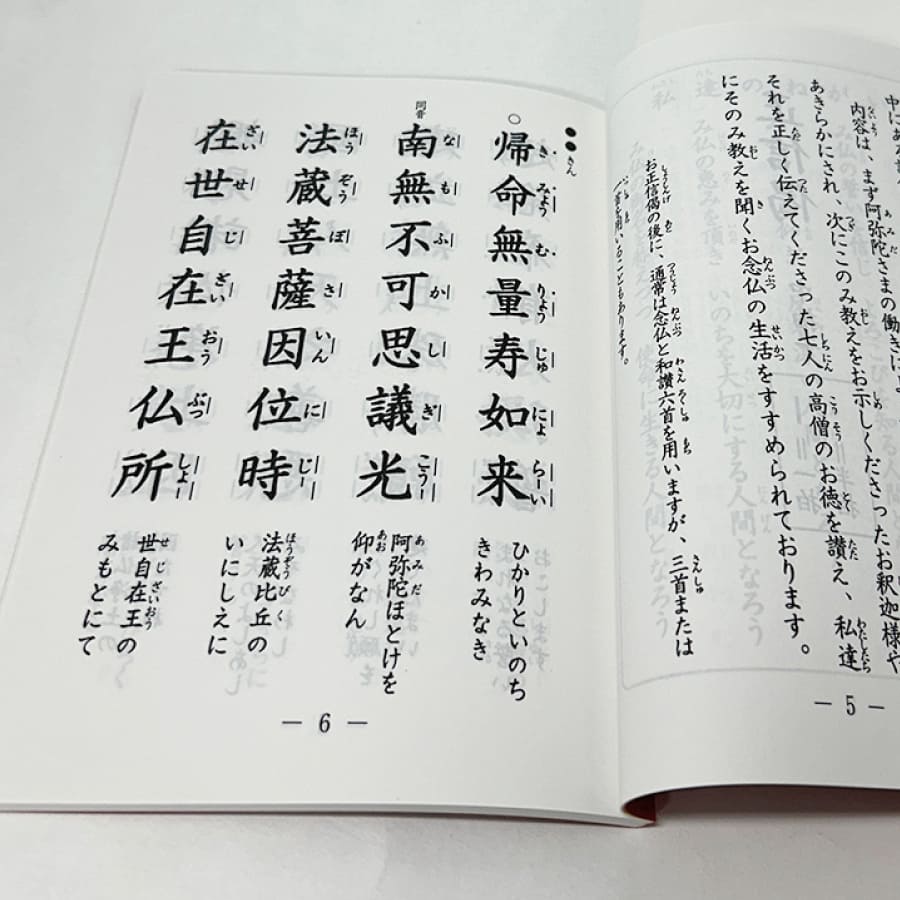 内容は、まず阿弥陀さまの働きに
あきらかにされ、次にこのみ教えをお示しくださったお釈迦様や
それを正しく伝えてくださった七人の高僧のお徳を讃え、私達
にそのみ教えを聞くお念仏の生活をすすめられております。
お正信偈の後に、通常は念仏と和讃六首を用いますが、三首または
一首を用いることもあります。
— 5 —
●●さん
○帰命無量寿如来
ひかりといのち
きわみなき
同音
南無不可思議光
阿弥陀ほとけを
仰がなん
法蔵菩薩因位時
法蔵比丘の
いにしえに
在世自在王仏所
世自在王の
みもとにて
— 6 —